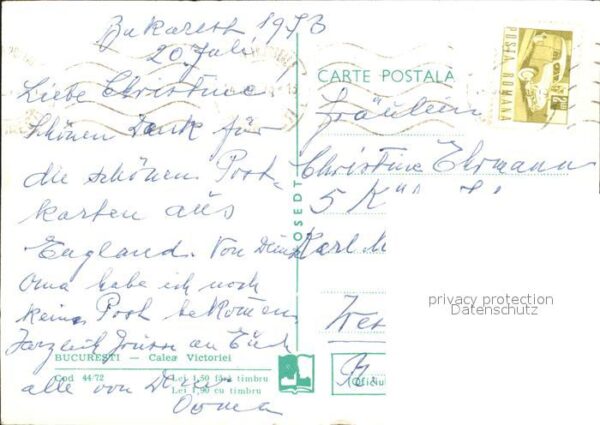 Bukarest 1973
20 Juli
Liebe Christine
Schönen Dank für
die schönen Post-
karten aus
England. Von Deine
Oma habe ich noch
keine Post bekomen
Herzlich Grüsse an Euch
alle von Deine
Ooma
BUCUREŞTI — Calea Victoriei
Cod 44/72
Lei 1,50 fără timbru
Lei 1,90 cu timbru
OSEDT
CARTE POSTALA
POSTA ROMANA
Fräulein
Christine Ehrmann
5 Kö
Karl
Wes
Oficiu
privacy protection
Datenschutz